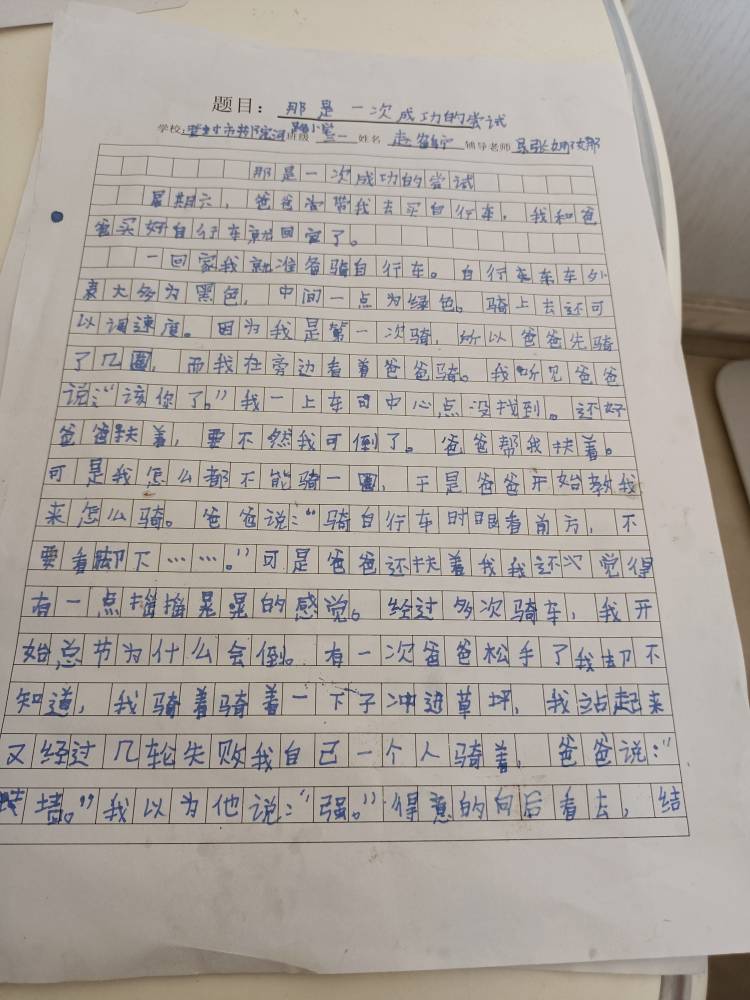 题目：那是一次成功的尝试
学校： 班级 三一 姓名 赵 辅导老师
那是一次成功的尝试
星期六，爸爸带我去买自行车，我和爸
爸买好自行车就回家了。
一回家我就准备骑自行车。自行车车外
表大多为黑色，中间一点为绿色。骑上去还可
以调速度。因为我是第一次骑，所以爸爸先骑
了几圈，而我在旁边看着爸爸骑。我听见爸爸
说：“该你了。”我一上车可中心点没找到。还好
爸爸扶着，要不然我可倒了。爸爸帮我扶着。
可是我怎么都不能骑一圈，于是爸爸开始教我
来怎么骑。爸爸说：“骑自行车时眼看前方，不
要看脚下……。”可是爸爸还扶着我我还觉得
有一点摇摇晃晃的感觉。经过多次骑车，我开
始总节为什么会倒。有一次爸爸松手了我却不
知道，我骑着骑着一下子冲进草坪，我站起来
又经过几轮失败我自己一个人骑着，爸爸说：“
墙。”我以为他说：“强。”得意的向后看去，结